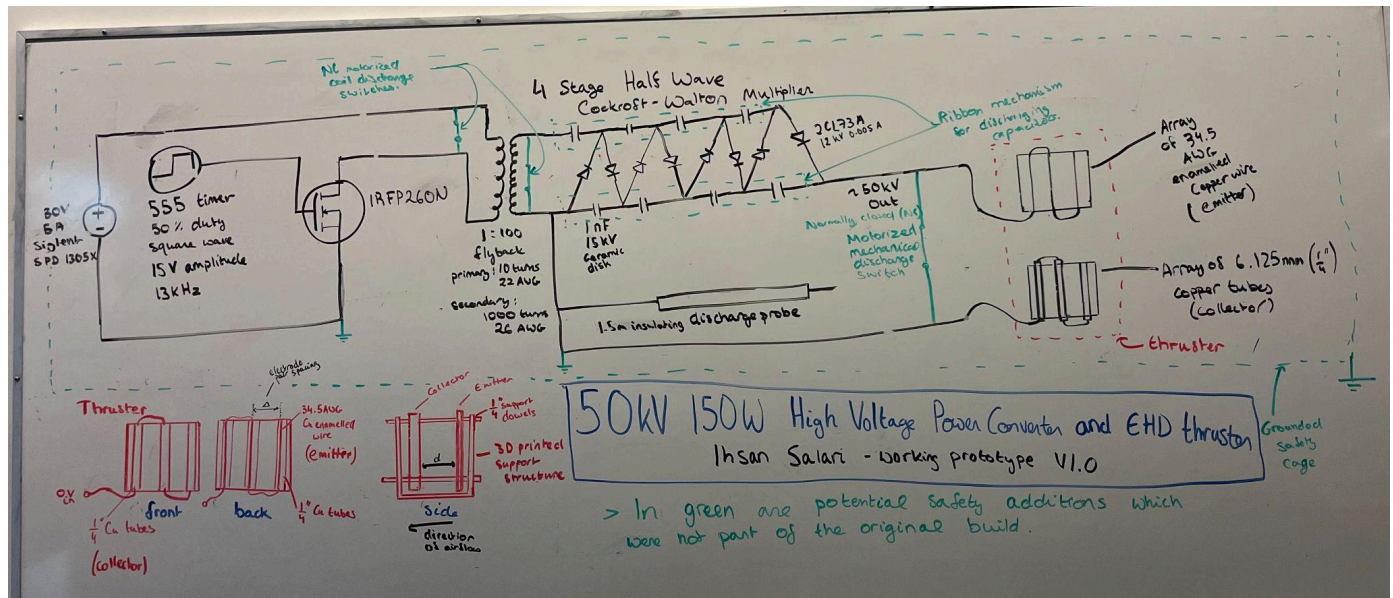 NC motorized
coil discharge
switches.
4 Stage Half Wave
Cockroft-Walton Multiplier
2CL73A
12 kV 0.005 A
Ribbon mechanism
for discharging
capacitors.
Array
of 34.5
AWG
enamelled
copper wire
(emitter)
30V
5A
Siglent
SPD 1305X
+
-
555 timer
50% duty
square wave
15V amplitude
13kHz
IRFP260N
1:100
flyback
primary: 10 turns
22 AWG
secondary:
1000 turns
26 AWG
1nF
15kV
ceramic
disk
~50kV
Out
Normally closed (NC)
Motorized
mechanical
discharge
switch
1.5m insulating discharge probe
Array of 6.125mm (1/4")
copper tubes
(collector)
thruster
Thruster
0V
1/4" Cu tubes
(collector)
front
electrode
pair spacing
Δ
34.5AWG
Cu enamelled
wire
(emitter)
1/4" Cu tubes
back
Collector
Emitter
1/4" support
dowels
3D printed
support
structure
d
Side
direction
of airflow
50kV 150W High Voltage Power Converter and EHD thruster
Ihsan Salari - working prototype V1.0
Grounded
safety
cage
> In green are potential safety additions which
were not part of the original build.